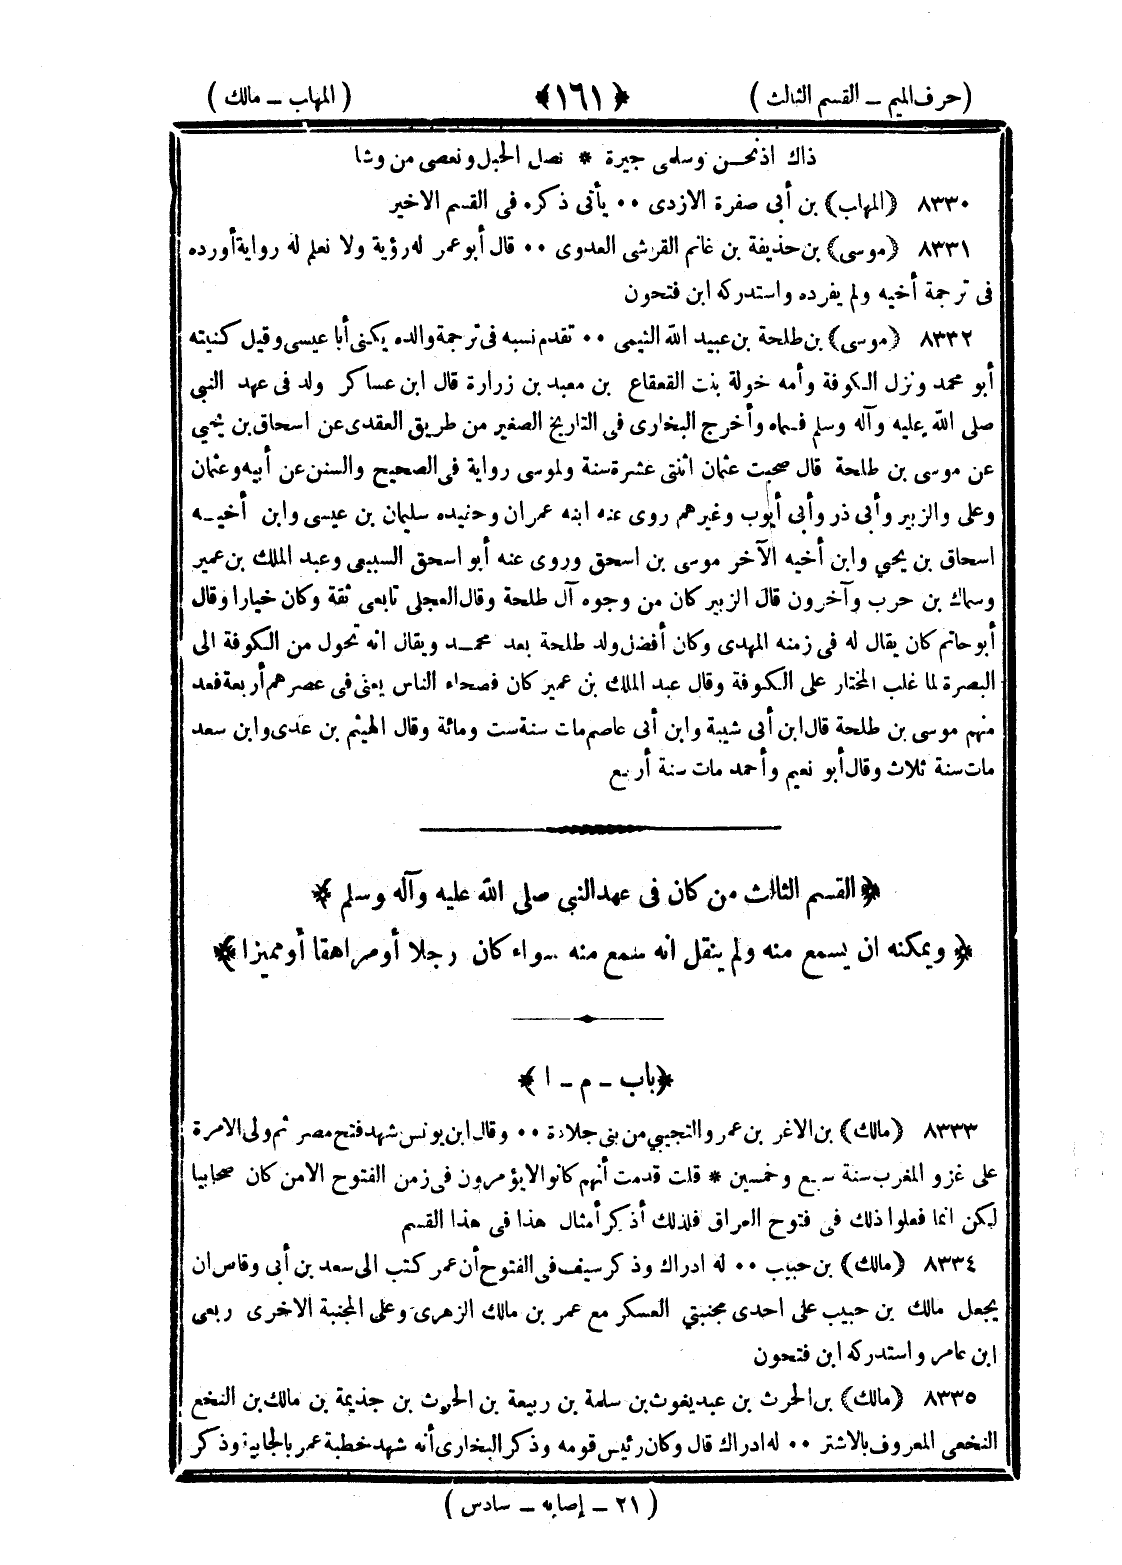 (حرف الميم ــ القسم الثالث)
﴿١٦١﴾
(المهلب ــ مالك)
ذاك اذ نحن وسلمى جيرة * نصل الحبل ونعصى من وشا
٨٣٣٠ (المهلب) بن أبي صفرة الازدى ٠٠ يأتى ذكره فى القسم الاخير
٨٣٣١ (موسى) بن حذيفة بن غانم القرشى العدوى ٠٠ قال أبو عمر له رؤية ولا نعلم له رواية أورده
فى ترجمة أخيه ولم يفرده واستدركه ابن فتحون
٨٣٣٢ (موسى) بن طلحة بن عبيد الله التيمى ٠٠ تقدم نسبه فى ترجمة والده يكنى أبا عيسى وقيل كنيته
أبو محمد ونزل الكوفة وأمه خولة بنت القعقاع بن معبد بن زرارة قال ابن عساكر ولد فى عهد النبي
صلى الله عليه وآله وسلم فسماه وأخرج البخارى فى التاريخ الصغير من طريق العقدى عن اسحاق بن يحيي
عن موسى بن طلحة قال صحبت عثمان اثنتى عشرة سنة ولموسى رواية فى الصحيح والسنن عن أبيه وعثمان
وعلى والزبير وأبى ذر وأبى أيوب وغيرهم روى عنه ابنه عمران وحفيده سليمان بن عيسى وابن أخيه
اسحاق بن يحيي وابن أخيه الآخر موسى بن اسحق وروى عنه أبو اسحق السبيعى وعبد الملك بن عمير
وسماك بن حرب وآخرون قال الزبير كان من وجوه آل طلحة وقال العجلى تابعى ثقة وكان خيارا وقال
أبو حاتم كان يقال له فى زمنه المهدى وكان أفضل ولد طلحة بعد محمد ويقال انه تحول من الكوفة الى
البصرة لما غلب المختار على الكوفة وقال عبد الملك بن عمير كان فصحاء الناس يعنى فى عصرهم أربعة فعد
منهم موسى بن طلحة قال ابن أبى شيبة وابن أبى عاصم مات سنة ست ومائة وقال الهيثم بن عدى وابن سعد
مات سنة ثلاث وقال أبو نعيم وأحمد مات سنة أربع
﴿القسم الثالث من كان فى عهد النبى صلى الله عليه وآله وسلم﴾
﴿ويمكنه ان يسمع منه ولم ينقل انه سمع منه سواء كان رجلا أو مراهقا أو مميزا﴾
﴿باب ــ م ــ ا﴾
٨٣٣٣ (مالك) بن الاغر بن عمرو التجيبي من بنى جلادة ٠٠ وقال ابن يونس شهد فتح مصر ثم ولى الامرة
على غزو المغرب سنة سبع وخمسين * قلت قدمت أنهم كانوا لا يؤمرون فى زمن الفتوح الا من كان صحابيا
لكن انما فعلوا ذلك فى فتوح العراق فلذلك أذكر أمثال هذا فى هذا القسم
٨٣٣٤ (مالك) بن حبيب ٠٠ له ادراك وذكر سيف فى الفتوح أن عمر كتب الى سعد بن أبى وقاص ان
يجعل مالك بن حبيب على احدى مجنبتي العسكر مع عمر بن مالك الزهرى وعلى المجنبة الاخرى ربعى
ابن عامر واستدركه ابن فتحون
٨٣٣٥ (مالك) بن الحرث بن عبد يغوث بن سلمة بن ربيعة بن الحرث بن جذيمة بن مالك بن النخع
النخعى المعروف بالاشتر ٠٠ له ادراك قال وكان رئيس قومه وذكر البخارى أنه شهد خطبة عمر بالجابية وذكر
(٢١ ــ إصابه ــ سادس)